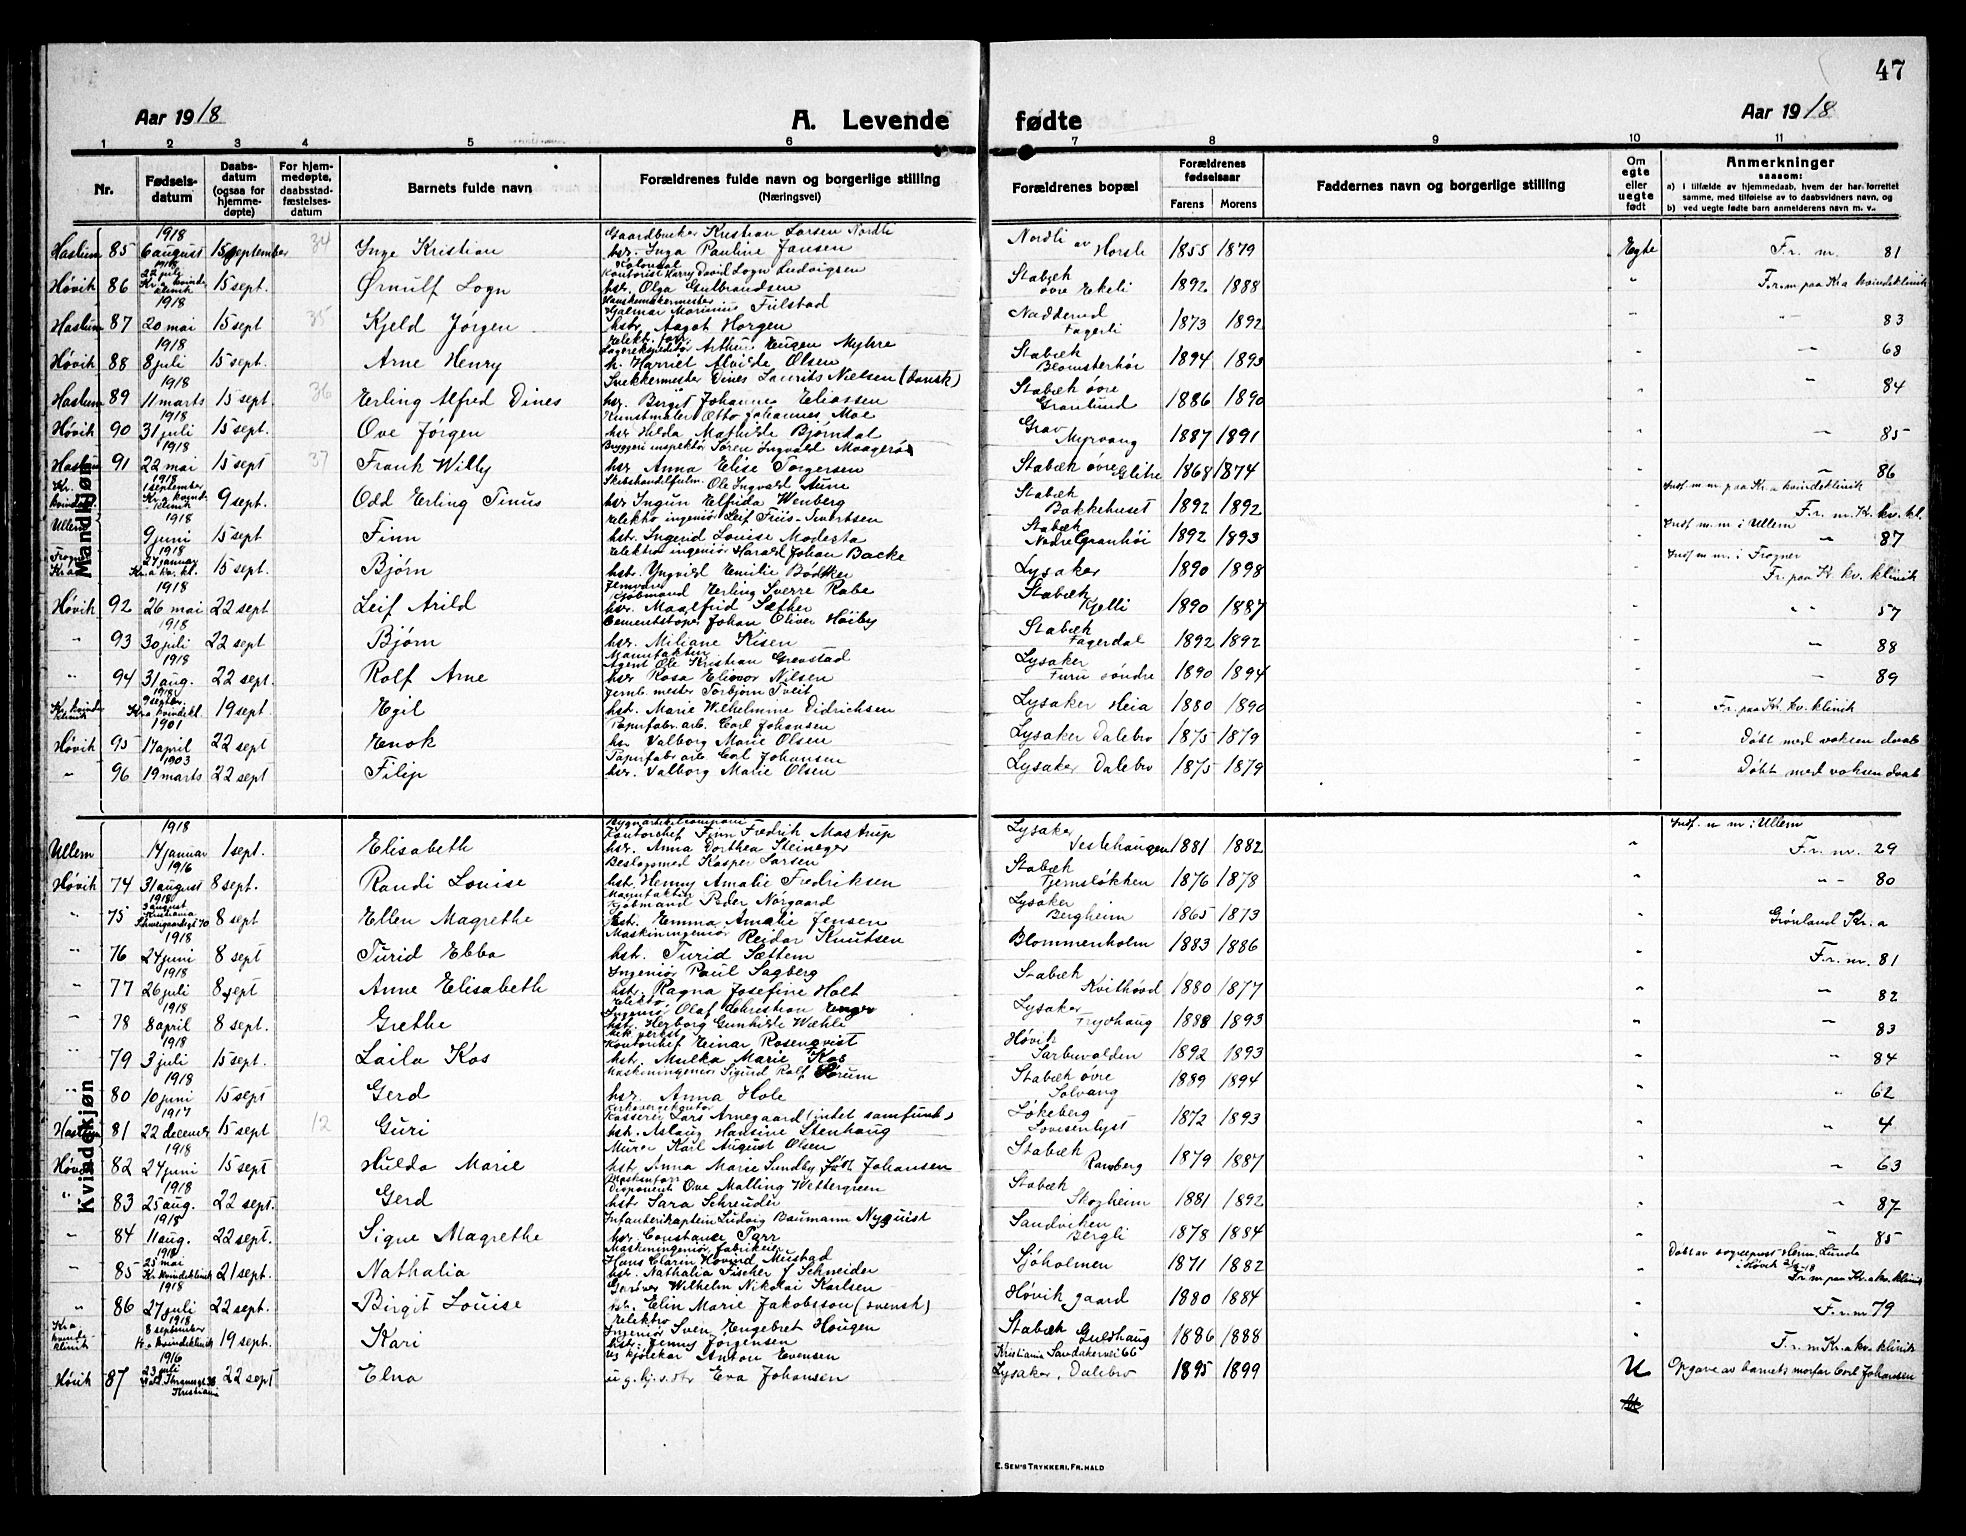 47
Aar 1918 A. Levende fødte Aar 1918
1 2 3 4 5 6 7 8 9 10 11
Nr. Fødsels-datum Daabs-datum (ogsaa for hjemme-døpte) For hjem-medøpte, daabsstad-fæstelses-datum Barnets fulde navn Forældrenes fulde navn og borgerlige stilling (Næringsvei) Forældrenes bopæl Forældrenes fødselsaar Farens Morens Faddernes navn og borgerlige stilling Om egte eller uegte født Anmerkninger saasom:
a) i tilfælde av hjemmedaab, hvem der har forrettet samme, med tilføielse av to daabsvidners navn, og
b) ved uegte fødte barn anmelderens navn m. v.
Mandkjøn
Haslum 85 1918 6 august 15 september 34 Inge Kristian Gaardbruker Kristian Larsen Nordli hstr. Inga Pauline Jansen Nordli av Horsle 1855 1879 Egte Fr. nr. 81
Høvik 86 Kr.a kvinde klinik 15 sept. Ørnulf Logn Kontorist Harry David Logn Ludvigsen hstr. Olga Gulbrandsen Stabæk øvre Ekeli 1892 1888 " F.r.m paa Kr.a kvindeklinik
Haslum 87 1918 20 mai 15 sept 35 Kjeld Jørgen Hanskemakermester Hjalmar Marinius Fulstad hstr. Aagot Horgen Nadderud Fagerli 1873 1892 " " 83
Høvik 88 1918 8 juli 15 sept. Arne Henry Lagerekspeditør Arthur Eugen Myhre h. Harriet Alvilde Olsen Stabæk Blomsterhöi 1894 1893 " " 68
Haslum 89 1918 11 marts 15 sept. 36 Erling Alfred Dines Snekkermester Dines Laurits Nielsen (dansk) hstr. Birgit Johanne Eliassen Stabæk øvre Granlund 1886 1890 " " 84
Høvik 90 1918 31 juli 15 sept. Ove Jørgen Kunstmaler Otto Johannes Moe hstr Hilda Mathilde Bjørndal Grav Myrvang 1887 1891 " " 85
Haslum 91 1918 22 mai 15 sept 37 Frank Willy Bryggeri inspektør Søren Ingvald Maagerø hstr. Anna Elise Torgersen Stabæk øvre Glitre 1868 1874 " " 86
Kr. kvindekl. 1918 1 september Kr.a kvinde klinik 9 sept. Odd Erling Tinus Skibshandelfulm. Ole Ingvald Aune hstr. Ingun Elfrida Wenberg Stabæk Bakkehuset 1892 1892 " Indf. m nr. paa Kr.a kvindeklinik F. r. nr. Kr. kv. kl.
Ullern 1918 9 juni 15 sept. Finn elektro ingeniør Leif Friis-Sivertsen hstr. Ingerid Louise Modesta Stabæk Nedre Granhöi 1892 1893 " Indf m nr i Ullern " 87
Frogner Kr.a 1918 27 januar Kr.a kv. kl. 15 sept. Bjørn Elektro ingeniør Harald Johan Backe hstr. Yngvild Emilie Bødtker Lysaker 1890 1898 " Indf m nr. i Frogner Fr. paa Kr. kv. klinik
Høvik 92 1918 26 mai 22 sept Leif Arild Kjöbmand Erling Sverre Rabe hstr. Maalfrid Sæther Stabæk Kjelli 1890 1887 " " " 57
" 93 1918 30 juli 22 sept Bjørn Cementstöper Johan Oliver Høiby hstr. Miliane Kisen Stabæk Fagerdal 1892 1892 " " 88
" 94 1918 31 aug. 22 sept. Rolf Arne Manufaktur Agent Ole Kristian Grevstad hstr Rosa Elinor Nilsen Lysaker Furu söndre 1890 1894 " " 89
Kr. kvinde klinik 1918 9 septbr. Kr.a kvindekl. 19 sept. Egil Jernb. mester Torbjørn Tveit hst. Marie Wilhelmine Didrichsen Lysaker Heia 1880 1890 " Fr. paa Kr. kv. klinik
Høvik 95 1901 17 april 22 sept Enok Papirfabr. arb. Carl Johansen hstr. Valborg Marie Olsen Lysaker Dalebro 1875 1879 " Døbt med voksen daab
" 96 1903 19 marts 22 sept Filip Papirfabr arb. Carl Johansen hstr. Valborg Marie Olsen Lysaker Dalebro 1875 1879 " Døbt med voksen daab
Kvindekjøn
Ullern 1918 14 januar 1 sept. Elisabeth Kontorchef Finn Fredrik Mostrup hstr. Anna Dorthea Steineger Lysaker Veslehaugen 1881 1882 " Indf. u nr i Ullern F.r. nr. 29
Høvik 74 1916 31 august 8 sept. Randi Louise Beslagsmed Kasper Larsen hst. Henny Amalie Fredriksen Stabæk Tjernsløkken 1876 1878 " " " 80
" 75 1918 3 august Kristiania Schweigaardsgt 70 8 sept Ellen Magrethe Manufaktur Kjöbmand Peder Nørgaard hstr. Emma Amalie Jensen Lysaker Bergheim 1865 1873 " Grønland Kr.a
" 76 1918 24 juni 8 sept Turid Ebba Maskiningeniør Reidar Knutsen hst. Turid Sættem Blommenholm 1883 1886 " F.r. nr. 81
" 77 1918 26 juli 8 sept Anne Elisabeth Ingeniør Paul Sagberg hstr. Ragna Josefine Holt Stabæk Kvithövd 1880 1877 " " 82
" 78 1918 8 april 8 sept. Grethe elektro Ingeniør Olaf Christian Enger hst. Herborg Gunhilde Wæhle Lysaker Frydhaug 1888 1893 " " 83
" 79 1918 3 juli 15 sept. Laila Kos Kontorchef Einar Rosenqvist hst. Mulka Marie Kos Høvik Sarbuvolden 1892 1893 " " 84
" 80 1918 10 juni 15 sept Gerd Maskiningeniør Sigurd Rolf Strum hstr. Anna Hole Stabæk øvre Solvang 1889 1894 " " 62
Haslum 81 1917 22 december 15 sept 12 Guri Kasserer Lars Arnegaard (intet samfund) hst. Aslaug Hansine Stenhaug Løkeberg Lovisenlyst 1872 1893 " " 4
Høvik 82 1918 24 juni 15 sept Hulda Marie Murer Karl August Olsen hst. Anna Marie Sundby født Johansen Stabæk Ramberg 1879 1887 " " 63
" 83 1918 25 aug. 22 sept. Gerd Disponent Ove Malling Wettergreen hstr Sara Schreuder Stabæk Skogheim 1881 1892 " " 87
" 84 1918 11 aug. 22 sept. Signe Magrethe Infanterikaptein Ludvig Baumann Nyquist hstr. Constance Parr Sandviken Bergli 1878 1884 " " 85
" 85 1918 25 mai Kr. kvindeklinik 21 sept. Nathalia Maskiningeniør, fabrikeier Hans Clarin Hovind Mustad hst. Nathalia Fischer f Schneider Sjøholmen 1871 1882 " Döbt av sogneprest Herm. Lunde i Høvik Fr. m paa Kr.a kv. klinik
" 86 1918 27 juli 22 sept. Birgit Louise Garver Wilhelm Nikolai Karlsen hstr. Elin Marie Jakobsson (svensk) Høvik gaard 1880 1884 " F.r. nr 79
Kr.a kvinde klinik 1918 8 september Kr.a kvindeklinik 19 sept. Kari elektro Ingeniør Sven Engebret Haugen hstr. Jenny Jørgensen Stabæk Guldhaug 1886 1888 " F.r. m Kr.a kv. klinik
Høvik 87 1916 23 juli Kristiania 22 sept Elna Anton Evensen ug. hj.v. dtr Eva Johansen Kristiania Sandakervei 66 Lysaker, Dalebro 1895 1899 U Opgave av barnets morfar Carl Johansen
E. SEM'S TRYKKERI, FR. HALD